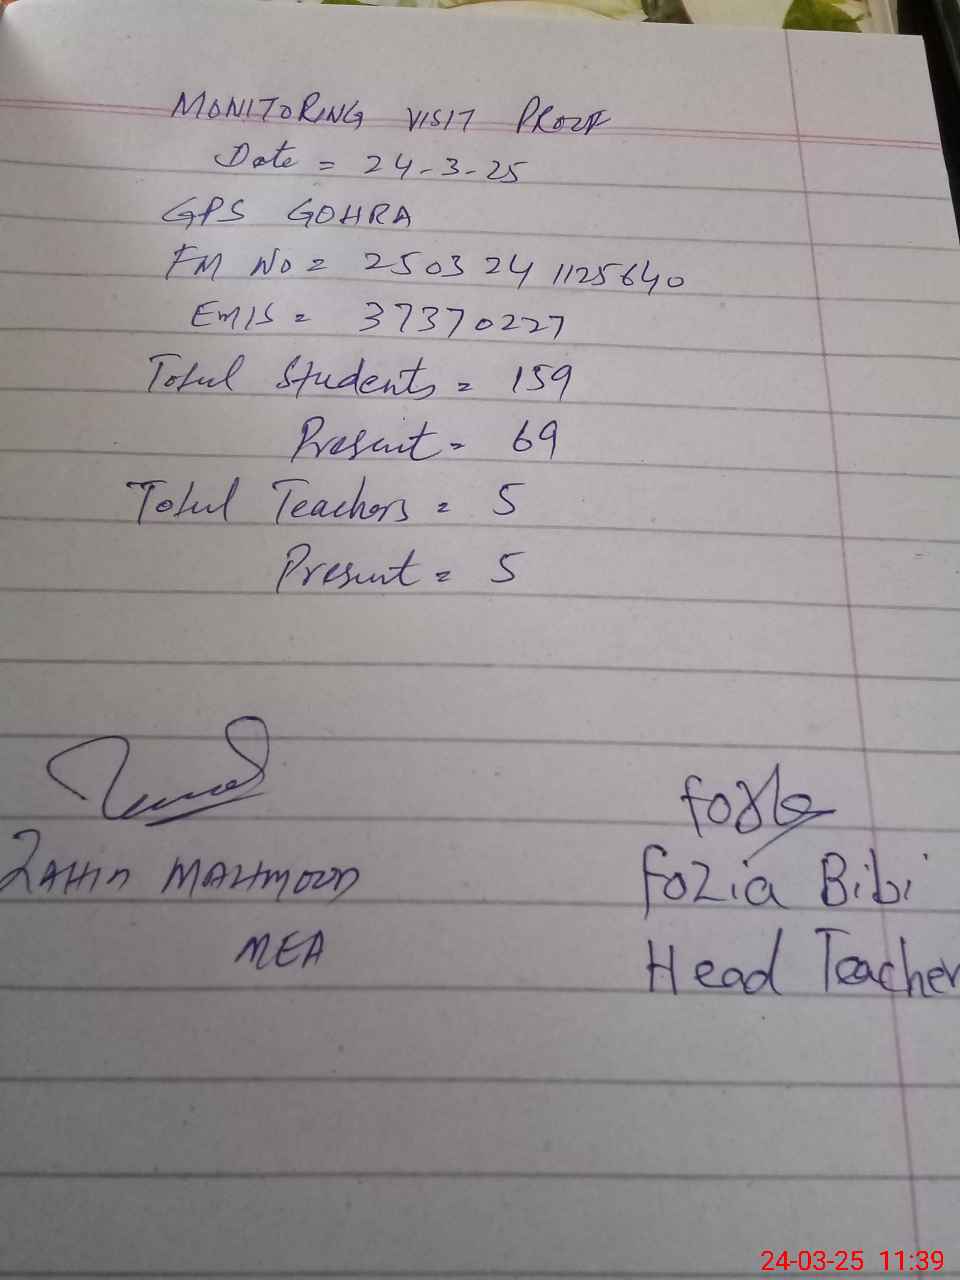 MONITORING VISIT PROOF
Date = 24-3-25
GPS GOHRA
FM No = 250324 1125640
EMIS = 37370227
Total Students = 159
Present = 69
Total Teachers = 5
Present = 5
MAHMOOD
MEA
Fozia Bibi
Head Teacher
24-03-25 11:39